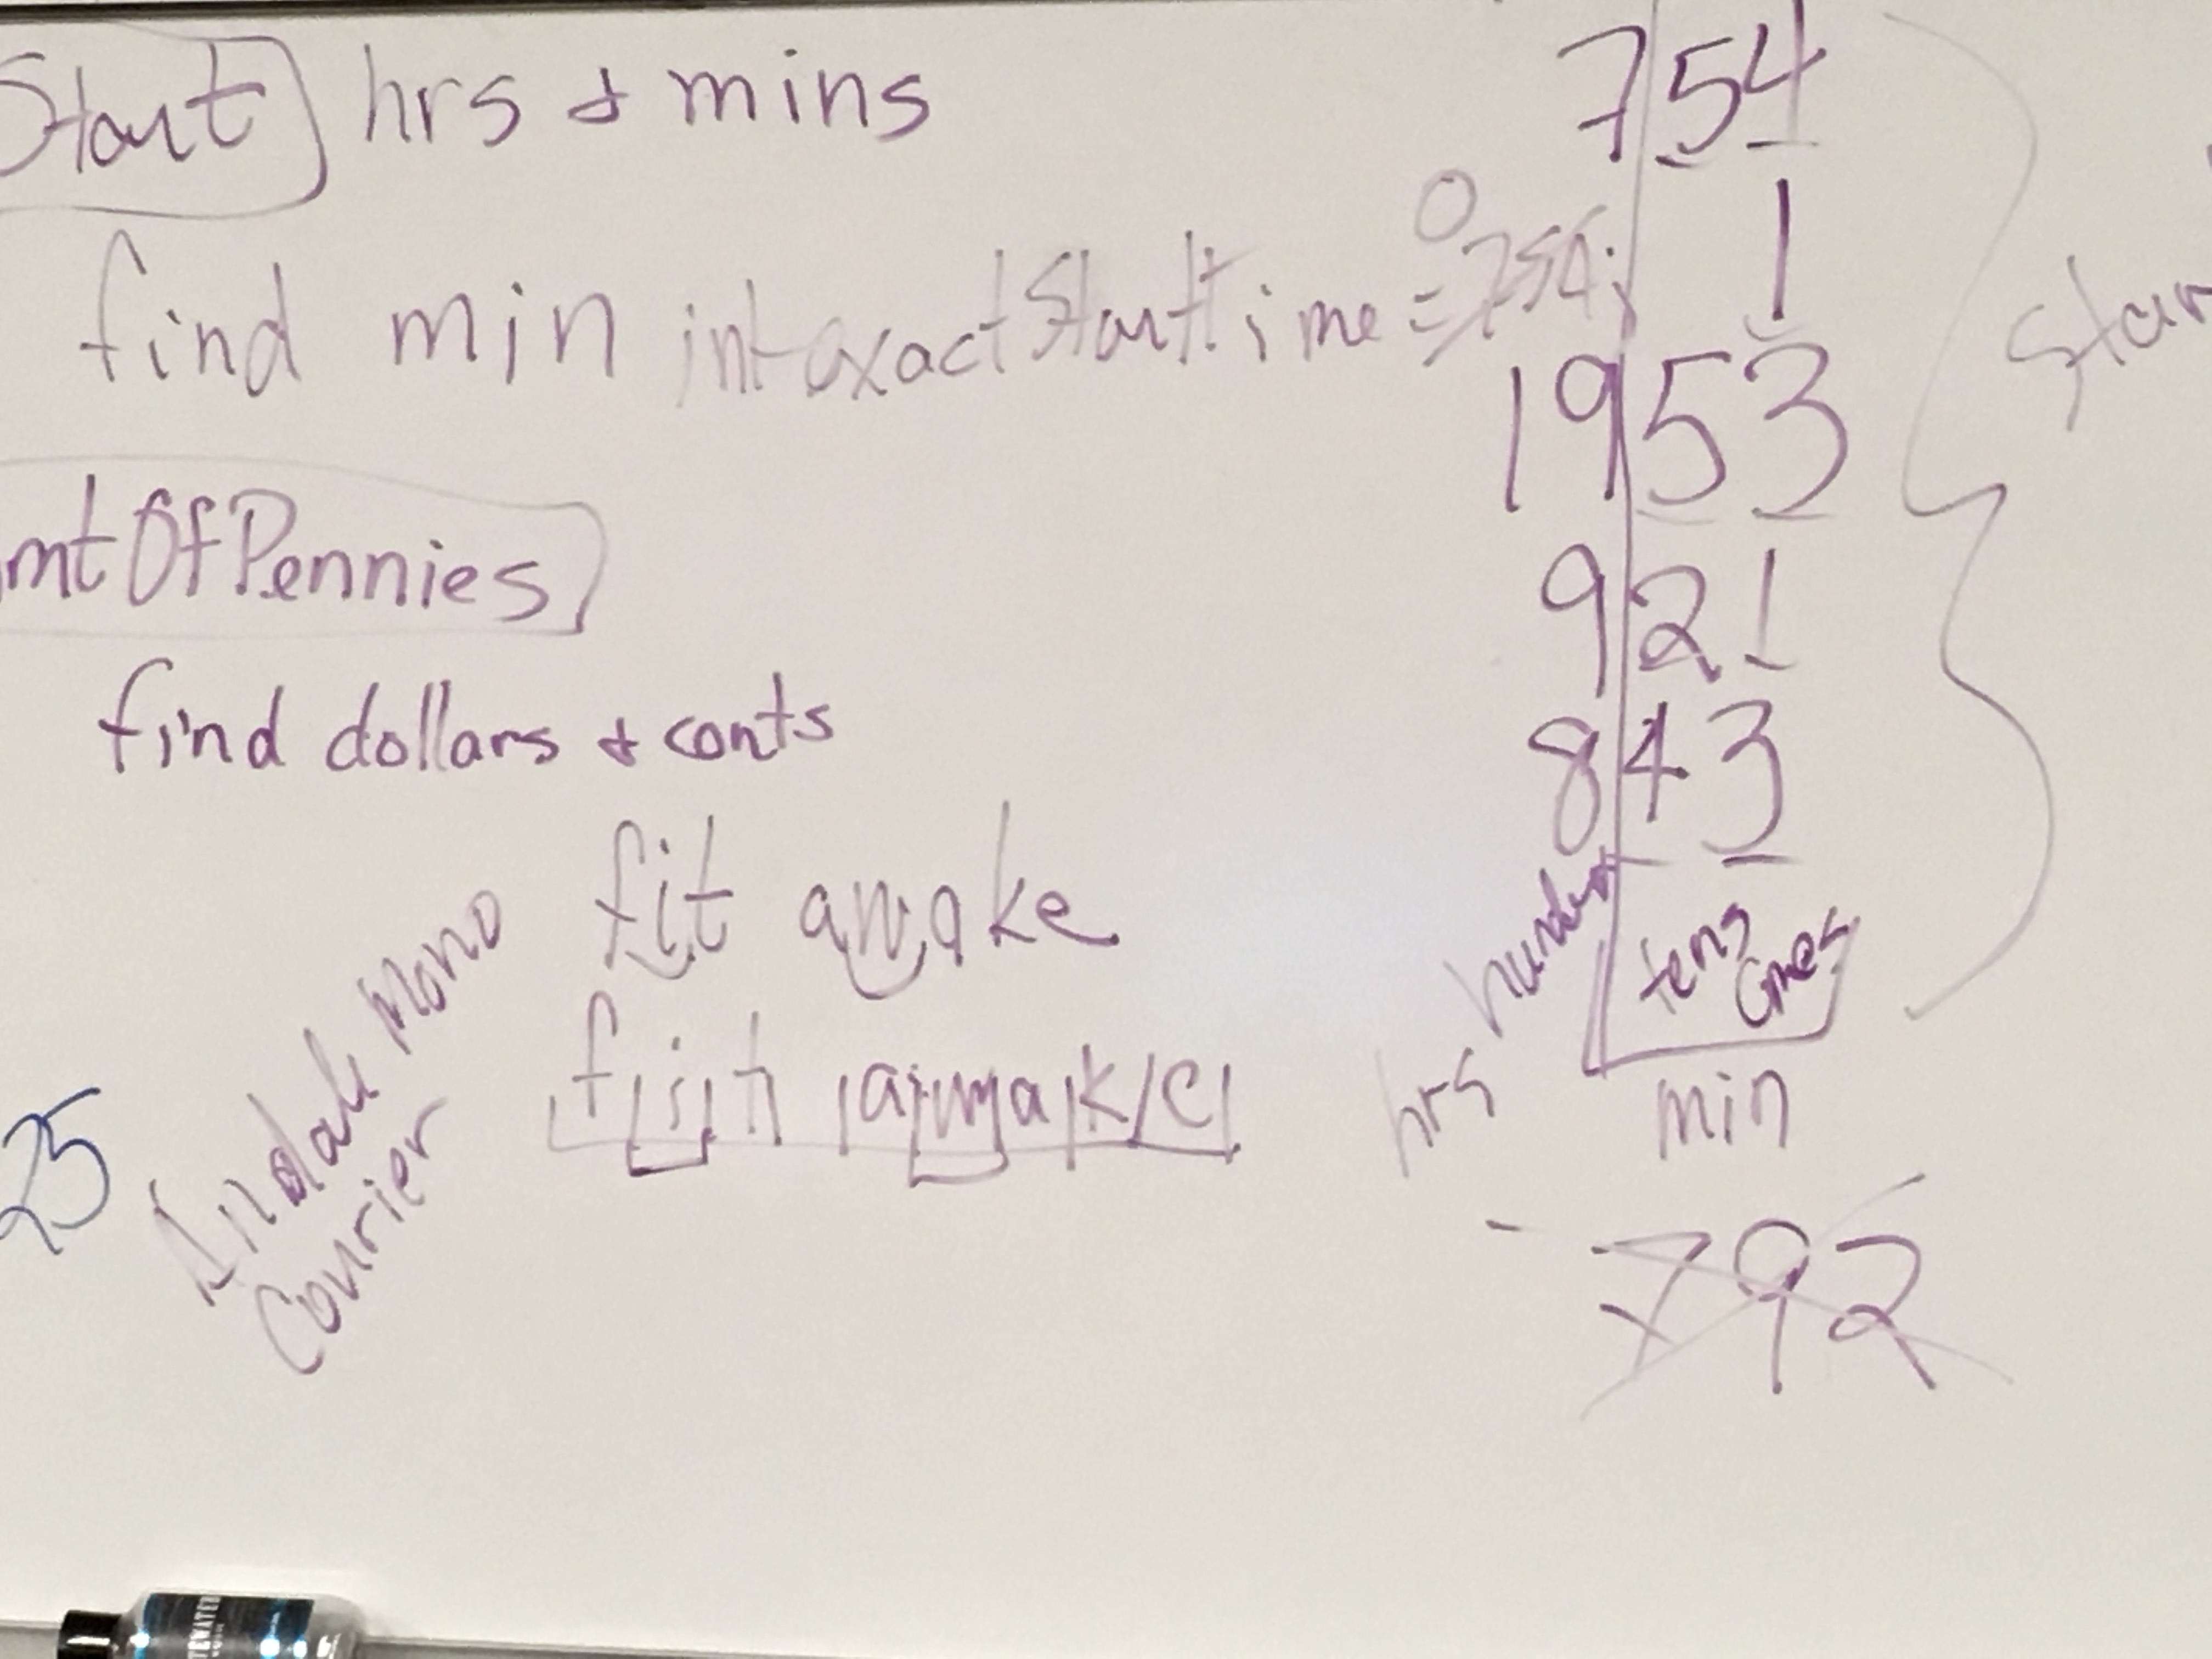 Start hrs & mins
754
1
find min int exactStartTime = 0754;
Star
1953
mtOfPennies
921
find dollars & cents
843
fit awake
hundred tens ones
fit awake
hrs min
Mono
Courier
25
792